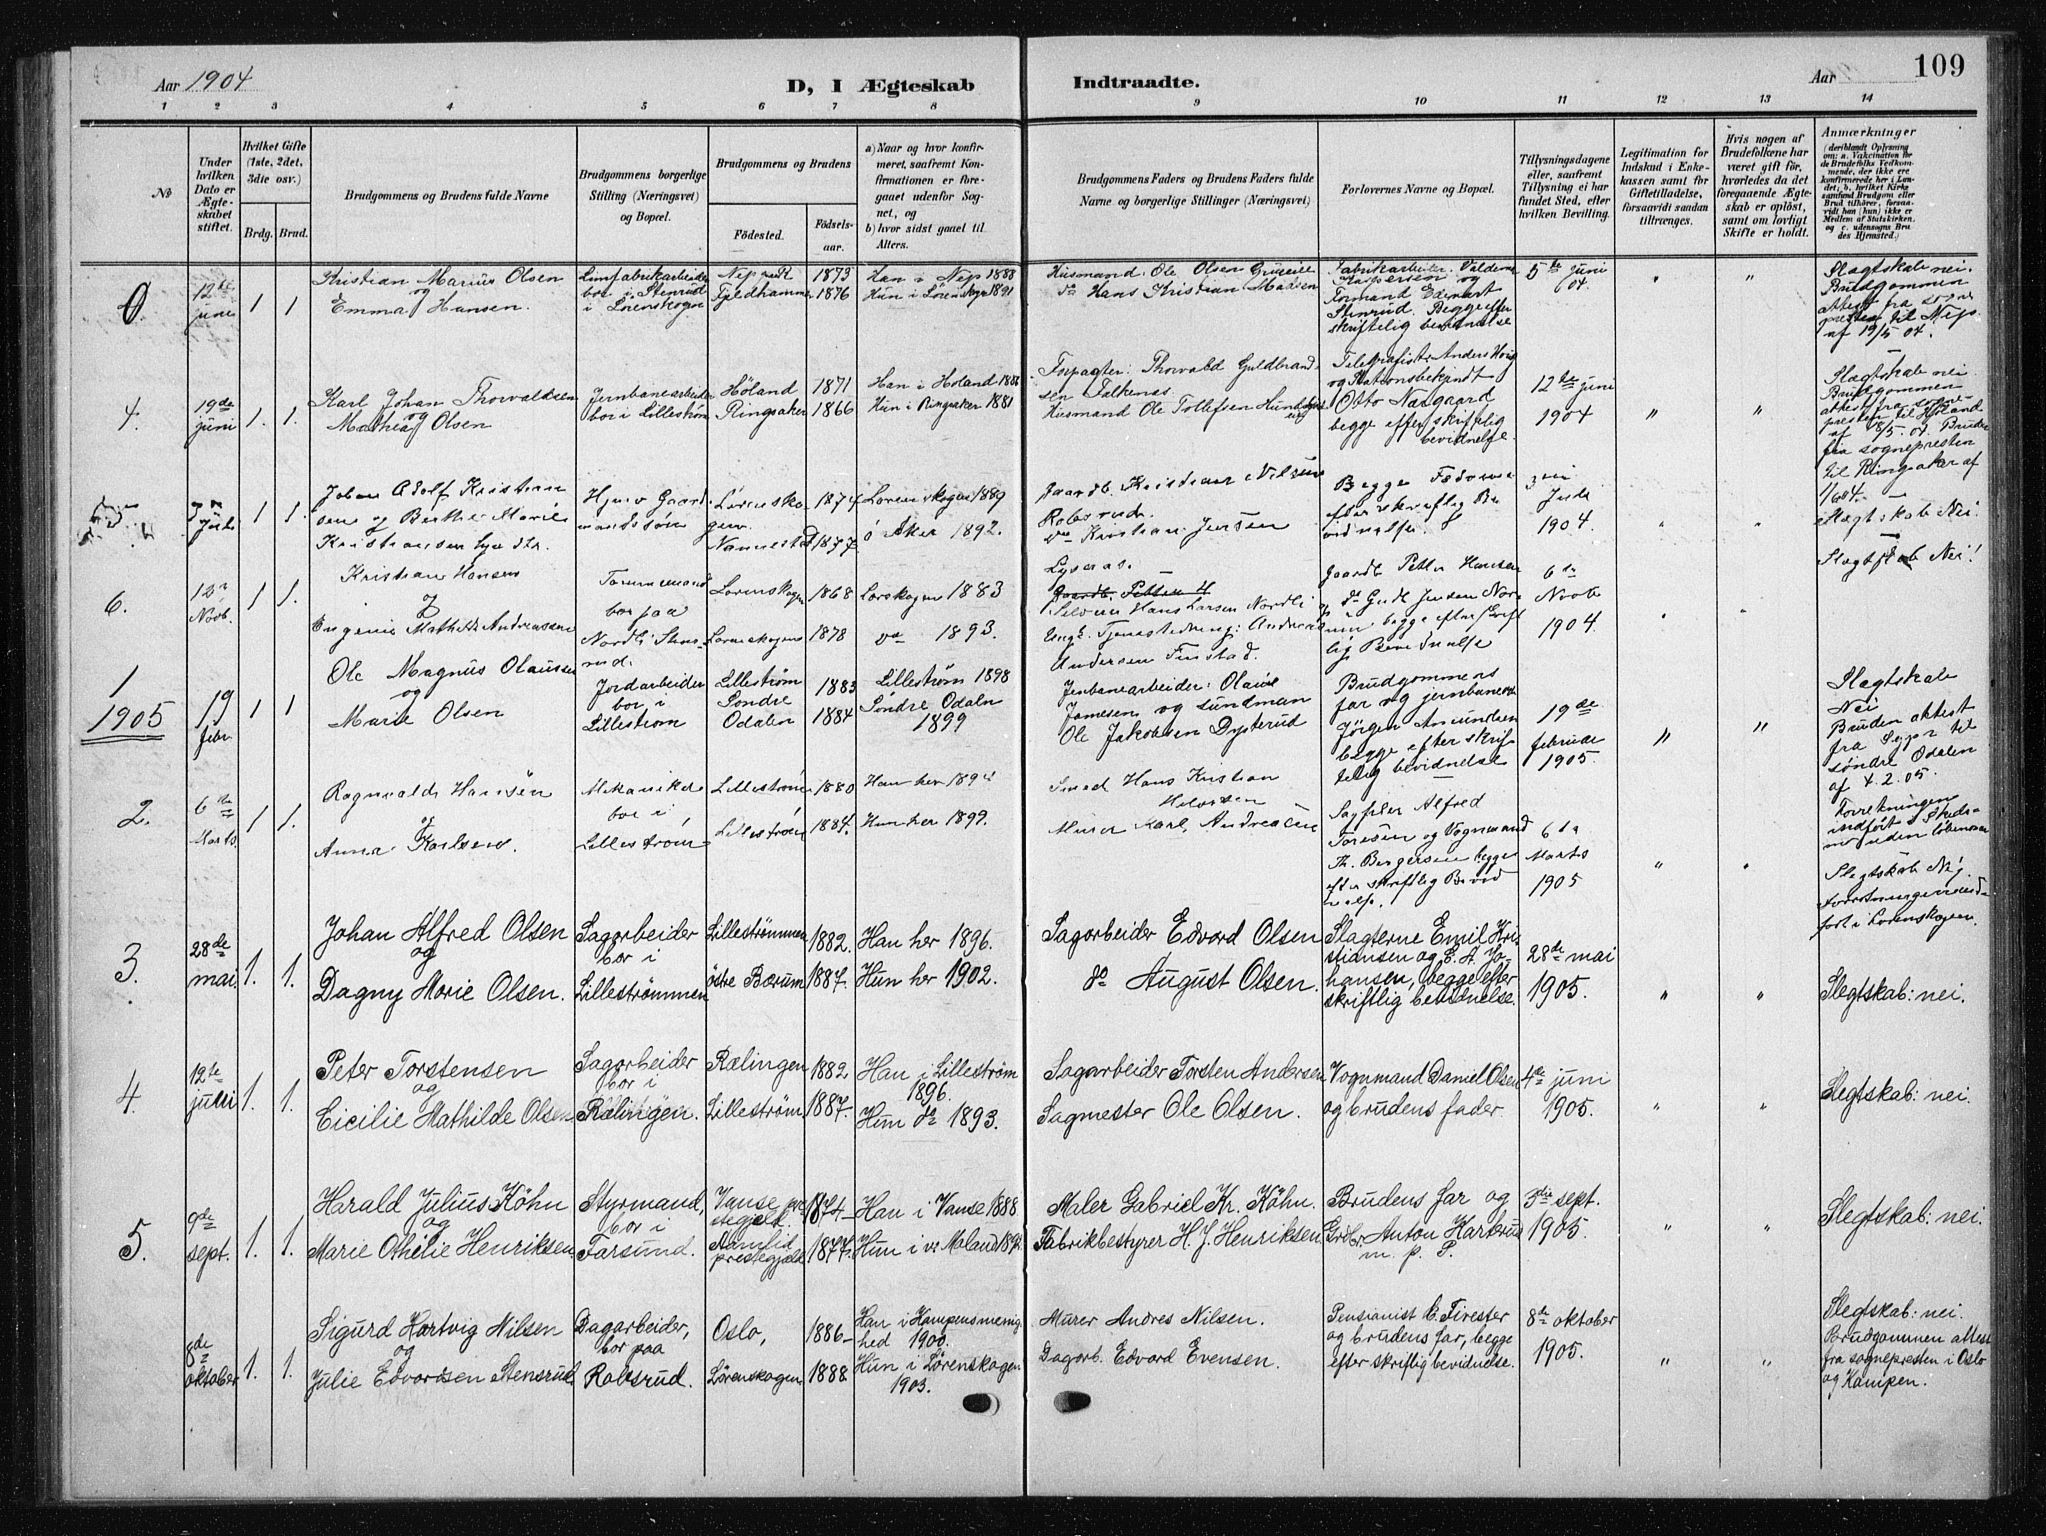 Aar 1904
D, I Ægteskab
Indtraadte.
Aar
109
1 2 3 4 5 6 7 8 9 10 11 12 13 14
No
Under hvilken Dato er Ægteskabet stiftet.
Hvilket Gifte (1ste, 2det, 3die osv.)
Brdg. Brud.
Brudgommens og Brudens fulde Navne
Brudgommens borgerlige Stilling (Næringsvei) og Bopæl.
Brudgommens og Brudens
Fødested.
Fødselsaar.
a) Naar og hvor konfirmeret, saafremt Konfirmationen er foregaaet udenfor Sognet, og
b) hvor sidst gaaet til Alters.
Brudgommens Faders og Brudens Faders fulde Navne og borgerlige Stillinger (Næringsvei)
Forlovernes Navne og Bopæl.
Tillysningsdagene eller, saafremt Tillysning ei har fundet Sted, efter hvilken Bevilling.
Legitimation for Indskud i Enkekassen samt for Giftetilladelse, forsaavidt saadan tiltrænges.
Hvis nogen af Brudefolkene har været gift før, hvorledes da det foregaaende Ægteskab er opløst, samt om lovligt Skifte er holdt.
Anmærkninger
(deriblandt Oplysning om: a. Vakcination for de Brudefolks Vedkommende, der ikke ere konfirmerede her i Landet, b. hvilket Kirkesamfund Brudgom eller Brud tilhører, forsaavidt han (hun) ikke er Medlem af Statskirken, og c. udensogns Brudes Hjemsted.)
12te juni
1 1
Kristian Marius Olsen
og
Emma Hansen.
bor i Stenrud
i Lørenskogen
Fjeldhammer
1873
1876
Han i Nes 1888
Hun i Lørenskogn 1891
Husmand Ole Olsen
do Hans Kristian Madsen
Fabrikarbeider Valdemar
Kaspersen og
Formand Edevart
Stenrud. Begge efter
skriftelig bevidnelse
5te juni
04
Slegtskab nei.
Brudgommen
attest fra sogne
presten til Nes
af 19/5 04.
4.
19de juni
1. 1.
Karl Johan Thorvaldsen
og
Mathea Olsen
Jernbanearbeider
bor i Lillestrøm
Høland
Ringsaker
1871
1866
Han i Høland 1886
Hun i Ringsaker 1881
Forpagter: Thorvald Guldbrand-
sen Falkenas
Husmand Ole Tollefsen
Telegrafist Anders
og Stationsbetjendt
Otto Næsgaard
begge efter skriftlig
bevidnelse.
12te juni
1904
Slegtskab nei
Brudgommen
attest fra sogne-
presten til Høland
af 18/5. 04. Bruden
fra sognepresten
til Ringsaker af
1/6 04.
1 1.
Johan Adolf Kristian
sen og Berthe Marie
Kristiansen
Lørensko
gen.
Nannestad
1874
1877
Lørenskogen 1889
ø Aker 1892.
Gaardb. Kristian Nilsen
Robsrud.
do Kristian Jensen
Begge Fædrene
efter skriftlig Be
vidnelse.
1904.
Slegtskab Nei.
6.
12
Novb.
1 1.
Kristian Hansen
og
Eugenie Mathilde Andreassen
Tømmermand
bor paa
Nordli
Lørenskogen
Lørenskogen
1868
1878
Lørskogen 1883
do 1893.
Lyseras.
Gaardb. Petter H
Selveier Hans Larsen Nordli
Andersen Finstad.
Gaardb Petter Hansen
begge efter skrift
lig Bevidnelse
6te
Novbr
1904.
Slegtskab Nei!
1
1905
19 febr
1 1
Ole Magnus Olaussen
og
Marie Olsen
Jordarbeider
bor i
Lillestrøm
Lillestrøm
Søndre
Odalen
1883
1884
Lillestrøm 1898
Søndre Odalen
1899
Jernbanearbeider: Olaus
Jamesen og sundman
Ole Jakobsen Dysterud
Brudgommens
far og jernbanearb
Jørgen Amundsen
begge efter skrif-
telig bevidnelse
19de
februar
1905.
Slegtskab
Nei
Bruden attest
fra Sgpr til
søndre Odalen
af 4.2.05.
2.
6te
Marts
1 1.
Ragnvald Hansen
og
Anna Karlsen.
Mekaniker
bor i
Lillestrøm
Lillestrøm
Lillestrøm
1880
1884.
Han her 1894
Hun her 1899.
Smed Hans Kristian
Halvorsen
Murer Karl Andreasen
Sagfiler Alfred
Toresen og Vognmand
Th. Bergersen begge
efter skriftlig Bevid
nelse.
6te
Marts
1905
Forretningen
indført i Skeds-
mo uden løbenavn
Slegtskab Nej.
Forretningen ind-
ført i Lørenskogen.
3.
28de mai
1. 1.
Johan Alfred Olsen
og
Dagny Marie Olsen.
Sagarbeider
bor i
Lillestrømmen
Lillestrømmen
østre Bærum
1882.
1887.
Han her 1896.
Hun her 1902.
Sagarbeider Edvard Olsen
do August Olsen.
Slagterne Emil Kri-
stiansen og E. A. Jo-
hansen, begge efter
skriftlig bevidnelse.
28de mai
1905.
Slegtskab: nei.
4.
12te juni
1. 1.
Peter Torstensen
og
Cicilie Mathilde Olsen
Sagarbeider
bor i
Rælingen.
Rælingen
Lillestrøm
1882
1887.
Han i Lillestrøm
1896.
Hun do 1893.
Sagarbeider Torsten Andersen
Sagmester Ole Olsen.
Vognmand Daniel Olsen
og brudens fader.
4de juni
1905.
Slegtskab: nei.
5.
9de sept.
1. 1.
Harald Julius Köhn
og
Marie Othelie Henriksen
Styrmand,
bor i
Farsund.
Vanse pre-
stegjeld.
prestegjæld
1874
1877.
Han i Vanse 1888
Hun i v. Moland 1892
Maler Gabriel Kr. Köhn.
Fabrikbestyrer H. J. Henriksen.
Brudens far og
Grdbr Anton Karterud
m. p. P.
3die sept.
1905.
Slegtskab: nei.
8de oktober
1. 1.
Sigurd Hartvig Nilsen
og
Julie Edvardsen Stensrud
Dagarbeider,
bor paa
Robsrud.
Oslo,
Lørenskogen
1886
1888
Han i Kampens menig
hed 1900.
Hun i Lørenskogen
1903.
Murer Andres Nilsen.
Dagarb. Edvard Evensen.
Pensionist C. Firester
og brudens far, begge
efter skriflig bevidnelse.
8de oktober
1905.
Slegtskab: nei.
Brudgommen attest
fra sognepresten i Oslo
og Kampen.